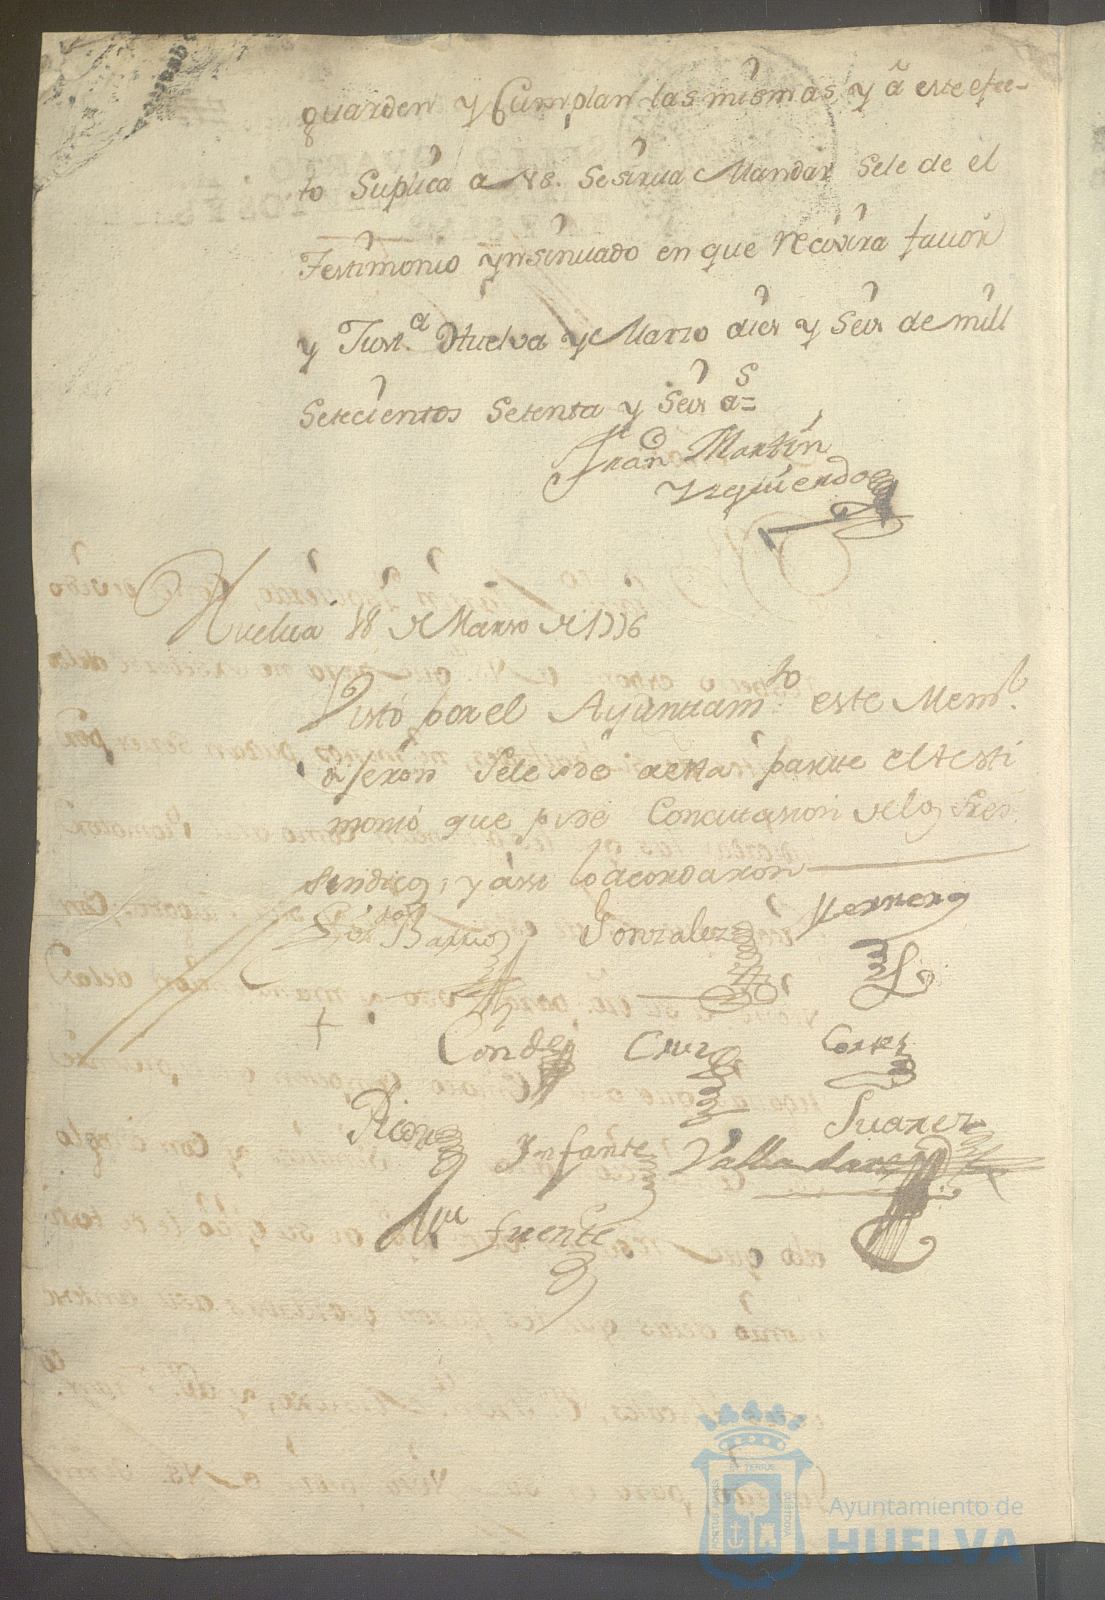 guarden y Cumplan las mismas y â este efec-
to Suplica a VS. Sesirua Mandar Sele de el
Testimonio ynsinuado en que recivira fauor
y Just.ª Huelva y Marzo dies y Seis de mill
Setecientos Setenta y Seis a.s=
Fran.co Martin
Yzquierdo
Huelua 18 de Marzo de 1776
Visto por el Ayuntam.to este Mem.l
dijeron Sele de a esta parte el testi
monio que pide Con citazion de los Sres.
Sindicos, y assi lo acordaron
Barrio Gonzalez Herrero
Conde Cruz Cortes
Picon Infante Valladares Suarez
fuente
Ayuntamiento de
HUELVA